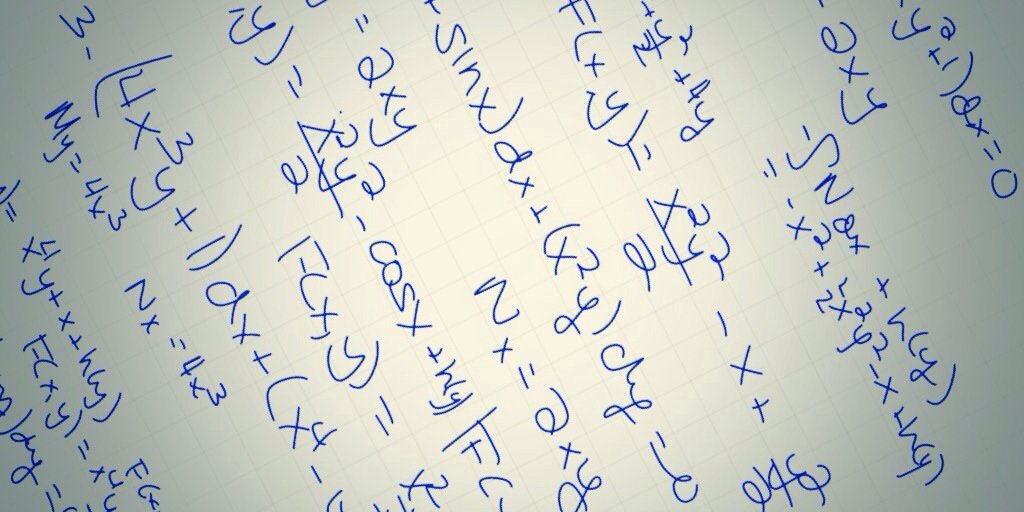 y²+1)dx=0
2xy
+h(y)
-x²+½x²y²-x+h(y)
+4y
F(x,y)= x²y²/2 - x +
+sinx)dx+(x²y)dy=0
=2xy Nx=2xy
y) = x²y²/2 - cosx+h(y)
F(x,y) = x²
3- (4x³y+1)dx+(x⁴-
My=4x³ Nx=4x³
= x⁴y+x+h(y)
F(x,y)=x⁴y
)dy =